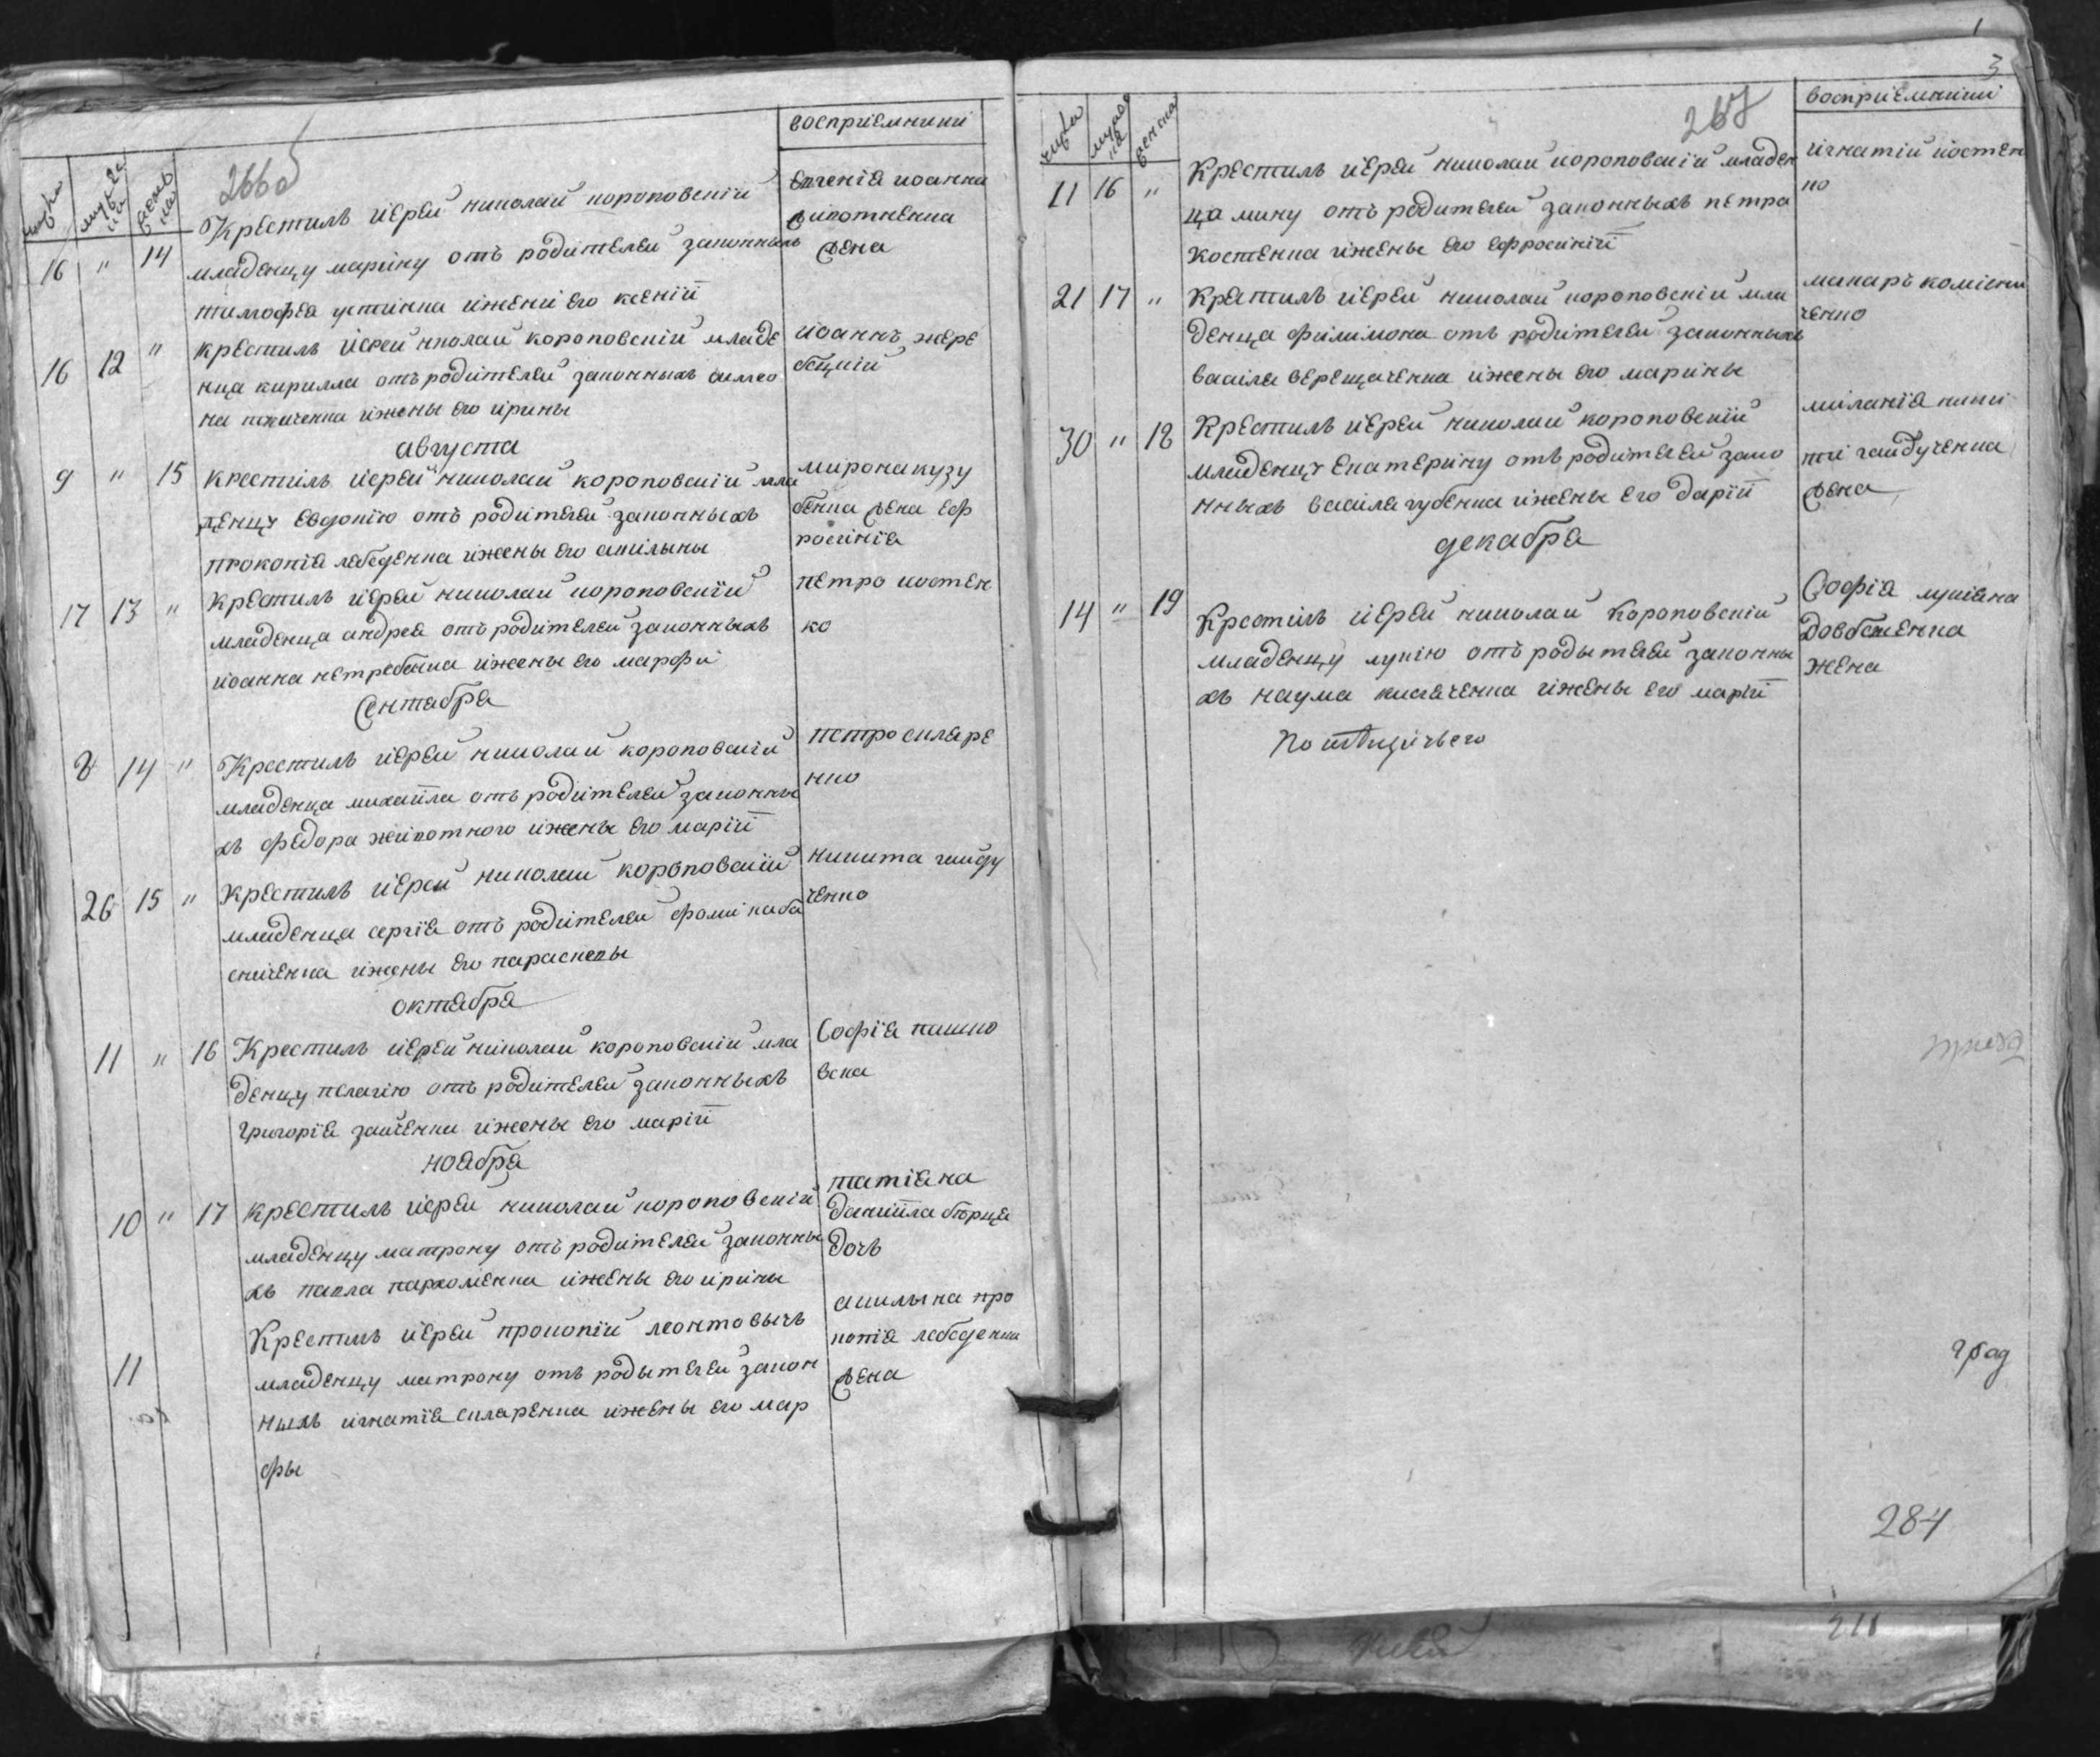 266об
числа мужеска женска
воспріемники
16 " 14 Крестилъ іерей николай короповскій
младенцу марину отъ родителей законныхъ
тимофея устинка ижени его ксеніи
евгенія иоанна
животченка
жена
16 12 " крестилъ іерей николай короповскій младе
нца кирилла отъ родителей законныхъ симео
на ижены его ирины
иоаннъ жере
бецкій
августа
9 " 15 крестилъ іерей николай короповскій мла
денцу евдокію отъ родителей законныхъ
прокопія лебеденка ижены его акилыны
мирона кузу
бенка жена еф
росинія
17 13 " Крестилъ іерей николай короповскій
младенца андрея отъ родителей законныхъ
иоанна нетребенка ижены его марфи
петро костен
ко
Сентября
8 14 " Крестилъ іерей николай короповскій
младенца михаила отъ родителей законны
хъ федора животного ижены его маріи
петро скляре
нко
26 15 " Крестилъ іерей николай короповскій
младенца сергія отъ родителей фоми каба
ченка ижены его парасковы
никита гайду
ченко
октября
11 " 16 Крестилъ іерей николай короповскій мла
денцу пелагію отъ родителей законныхъ
григорія зайченка ижены его маріи
Софія пашко
вска
ноября
10 " 17 крестилъ іерей николай короповскій
младенцу матрону отъ родителей законны
хъ павла пархоменка ижены его ирины
татіяна
даниила
дочъ
11 Крестилъ іерей прокопій леонтовычъ
младенцу матрону отъ родытелей закон
ныхъ игнатія скляренка ижены его мар
фы
акилына про
копія лебеденка
жена
3
267
числа мужеска женска
воспріемники
11 16 " Крестилъ іерей николай короповскій младен
ца мину отъ родителей законныхъ петра
костенка ижены его ефросиніи
игнатій костен
ко
21 17 " Крестилъ іерей николай короповскій мла
денца филимона отъ родителей законныхъ
василя верещаченка ижены его марины
макаръ
ченко
30 " 18 Крестилъ іерей николай короповскій
младенцу екатерину отъ родителей зако
нныхъ василя губенка ижены его даріи
миланія ники
ти гайдученка
жена
декабря
14 " 19 Крестилъ іерей николай короповскій
младенцу лукію отъ родытелей законны
хъ наума кислаченка ижены его маріи
Софія лукіяна
довбженка
жена
град
284